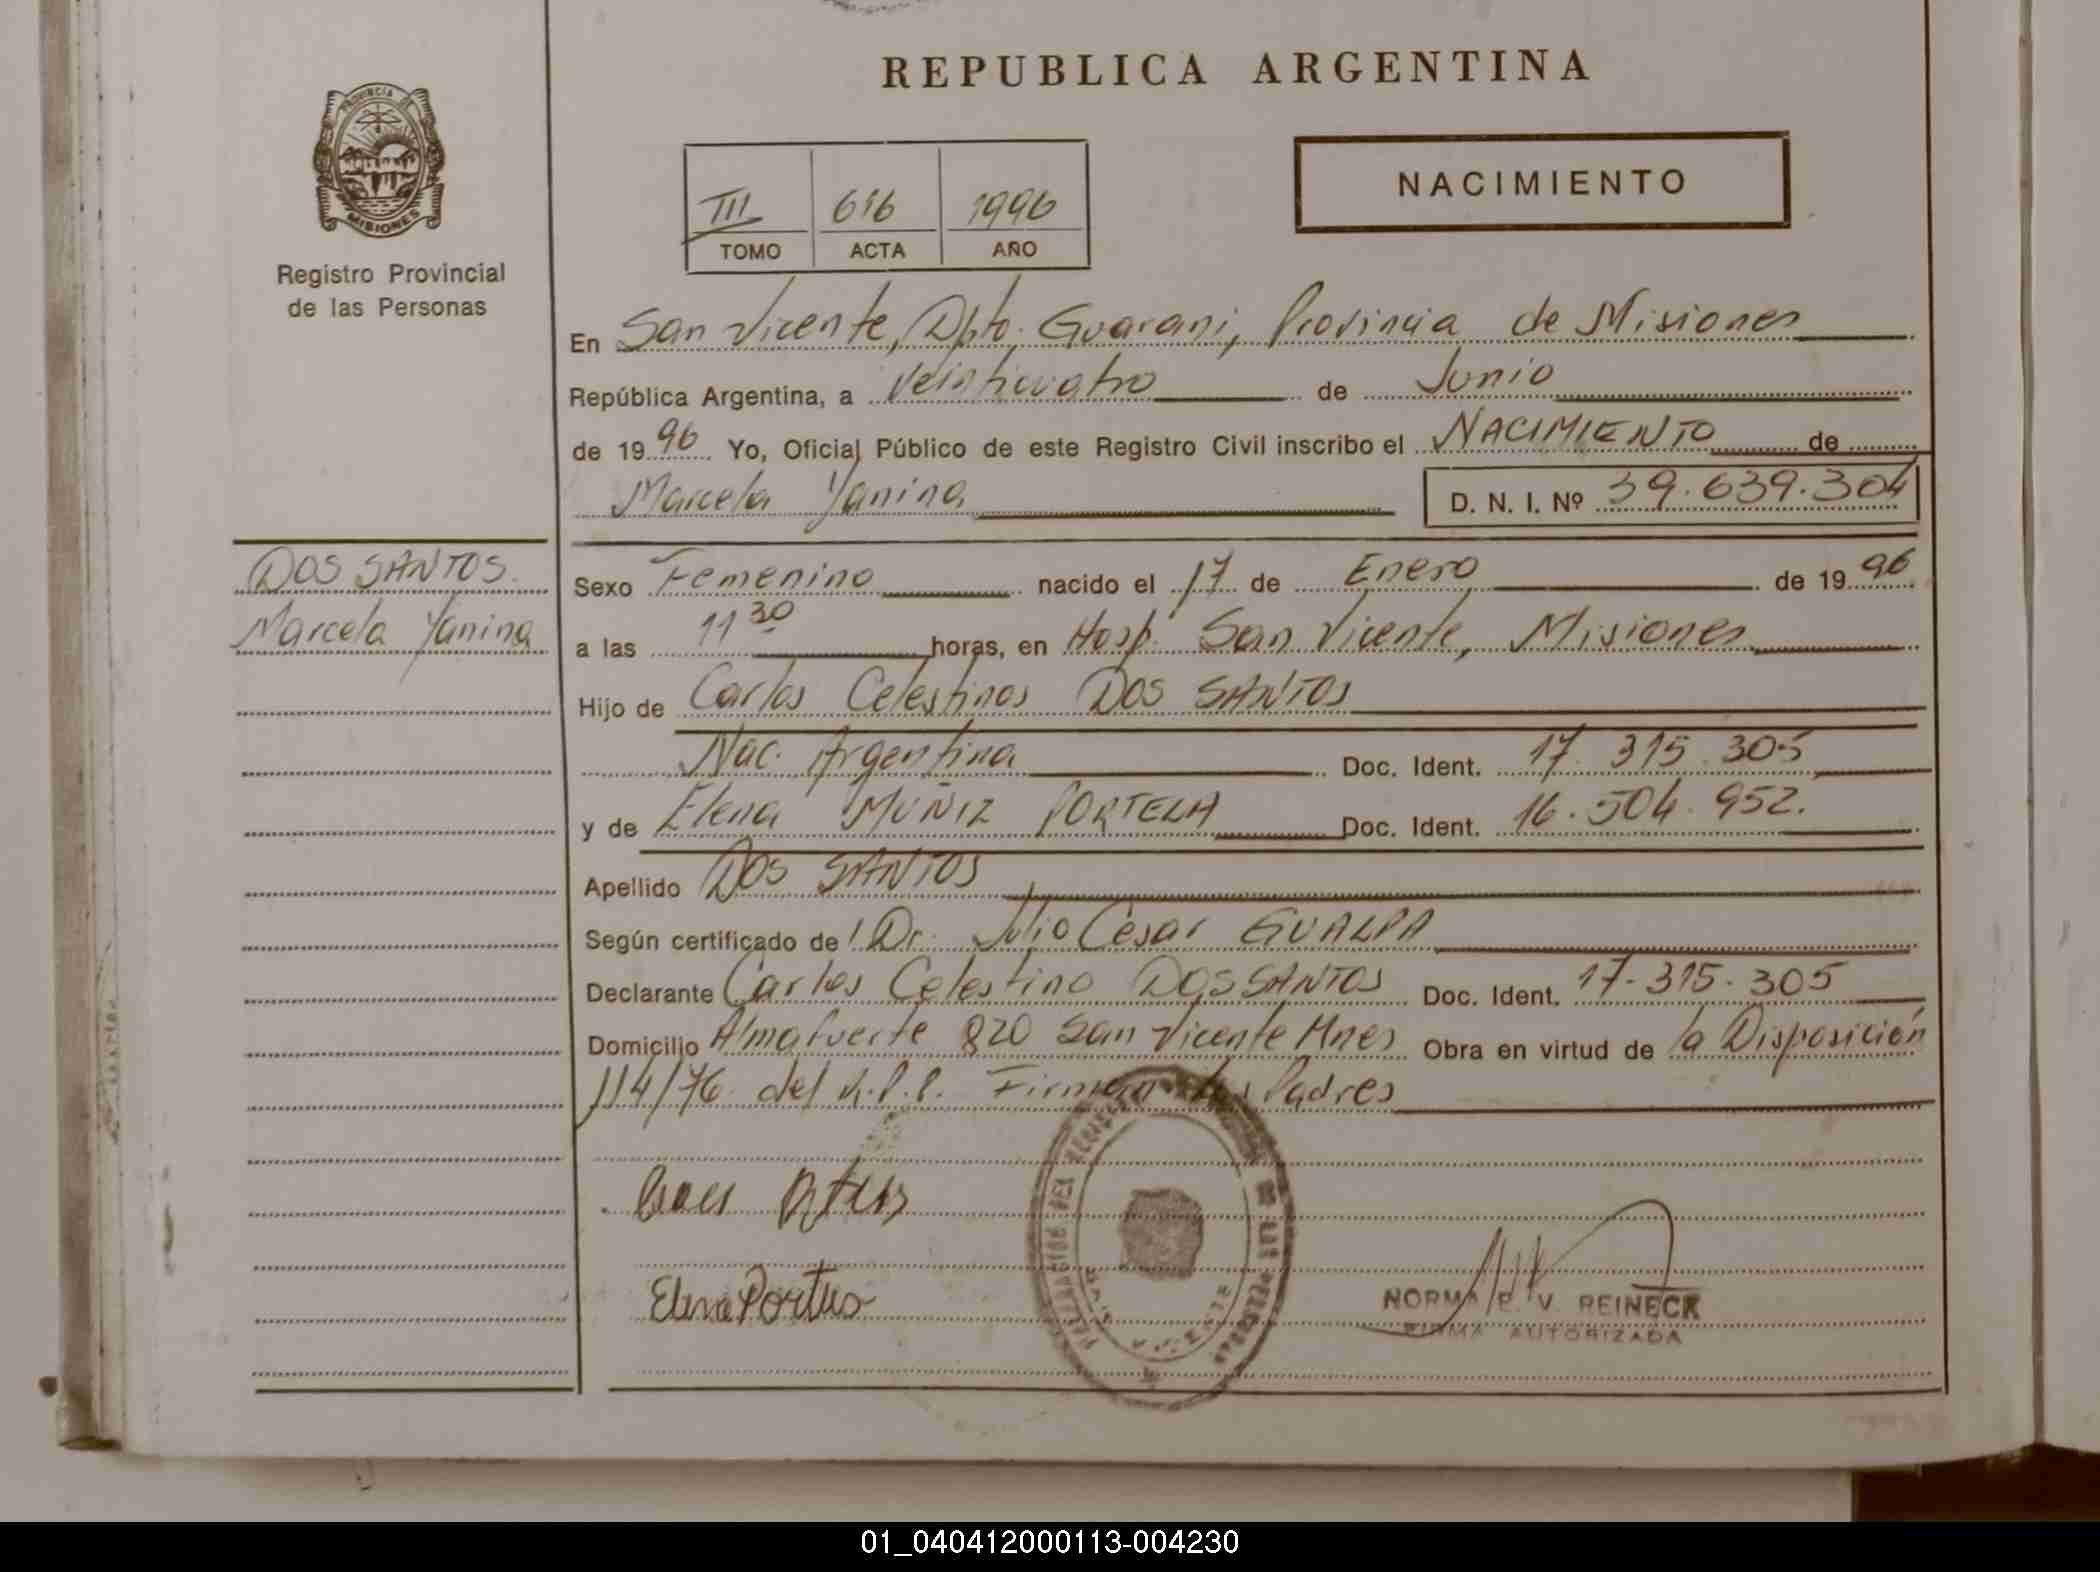 REPUBLICA ARGENTINA
PROVINCIA DE
MISIONES
Registro Provincial
de las Personas
III 616 1996
TOMO ACTA AÑO
NACIMIENTO
En San Vicente, Dpto. Guarani, Provincia de Misiones
República Argentina, a Veinticuatro de Junio
de 1996 Yo, Oficial Público de este Registro Civil inscribo el NACIMIENTO de
Marcela Yanina D. N. I. Nº 39.639.304
DOS SANTOS.
Marcela Yanina
Sexo Femenino nacido el 17 de Enero de 1996
a las 11 30 horas, en Hosp. San Vicente, Misiones
Hijo de Carlos Celestinos DOS SANTOS
Nac. Argentina Doc. Ident. 17.315.305
y de Elena MUÑIZ PORTELA Doc. Ident. 16.504.952.
Apellido DOS SANTOS
Según certificado de Dr. Julio Cesar GUALPA
Declarante Carlos Celestino DOS SANTOS Doc. Ident. 17-315-305
Domicilio Almafuerte 820 San Vicente Mnes Obra en virtud de la Disposición
114/76 del R.P.P. Firman los Padres
Elena
NORMA E. V. REINECK
FIRMA AUTORIZADA
01_040412000113-004230